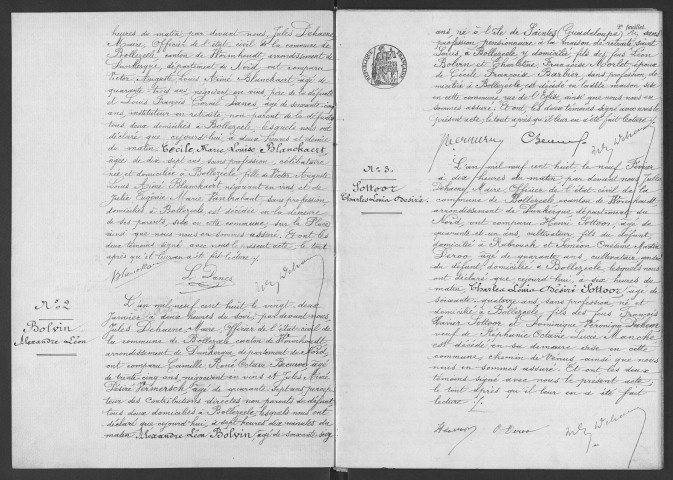 heures du matin par devant nous, Jules Dehaene
Maire, Officier de l'état civil de la commune de
Bollezeele, canton de Wormhoudt, arrondissement de
Dunkerque, département du Nord, ont comparu
Victor Auguste Louis Aimé Blanckaert âgé de
quarante trois ans, négociant en vins, père de la défunte
et Louis François Cornil âgé de soixante cinq
ans, instituteur en retraite, non parent de la défunte
tous deux domiciliés à Bollezeele, lesquels nous ont
déclaré que cejourd'hui, à deux heures et demie
du matin, Cécile Marie Louise Blanckaert
âgée de dix sept ans sans profession, célibataire
née et domiciliée à Bollezeele, fille de Victor Auguste
Louis Aimé Blanckaert négociant en vins et de
Julie Eugénie Marie sans profession
domiciliés à Bollezeele est décédée en la demeure
de ses parents, sise en cette commune, sur la Place
ainsi que nous nous en sommes assuré. Et ont les
deux témoins signé avec nous le présent acte, le tout
après qu'il leur en a été fait lecture
Blanckaert
N°2
Bolvin
Alexandre Léon
L'an mil neuf cent huit le vingt deux
Janvier à deux heures du soir, par devant nous
Jules Dehaene, Maire, Officier de l'état civil de
la commune de Bollezeele canton de Wormhoudt,
arrondissement de Dunkerque, département du Nord,
ont comparu Camille René Octave âgé
de trente cinq ans, négociant en vins et Jules Aimé
Désiré Vermersch, âgé de quarante sept ans, percep
teur des contributions directes non parents du défunt
tous deux domiciliés à Bollezeele, lesquels nous ont
déclaré que cejourd'hui, à sept heures dix minutes du
matin Alexandre Léon Bolvin, âgé de soixante seize
2e feuillet
ans, né à l'île de Saintes (Guadeloupe), de
profession pensionnaire à la maison de retraite Saint
Louis, à Bollezeele y domicilié, fils des feus Léon
Bolvin et Charlotte Françoise Morlet, époux
de Cécile Françoise Barbier sans profession
à Bollezeele, est décédé en ladite maison, sise
en cette commune, rue de l'Eglise, ainsi que nous nous en
sommes assuré. Et ont les deux témoins signé avec nous le
présent acte, le tout après qu'il leur en a été fait lecture
N°3.
Tottoor
Charles Louis Désiré.
L'an mil neuf cent huit le neuf Février
à dix heures du matin par devant nous Jules
Dehaene, Maire Officier de l'état civil de la
commune de Bollezeele canton de Wormhoudt,
arrondissement de Dunkerque département du
Nord, ont comparu Henri Tottoor, âgé de
quarante et un ans, cultivateur, fils du défunt
domicilié à et Siméon Onésime
Deroo, âgé de quarante ans, cultivateur,
du défunt, domicilié à Bollezeele, lesquels nous
ont déclaré que cejourd'hui, à dix heures du
matin, Charles Louis Désiré Tottoor, âgé de
soixante quatorze ans, sans profession, né et
domicilié à Bollezeele, fils des feus François
Xavier Tottoor et Dominique Véronique
veuf de Stéphanie Octavie Luce Manche
est décédé en sa demeure sise en cette
commune, chemin de ainsi que nous
nous en sommes assuré. Et ont les deux
témoins signé avec nous le présent acte,
le tout après qu'il leur en a été fait
lecture